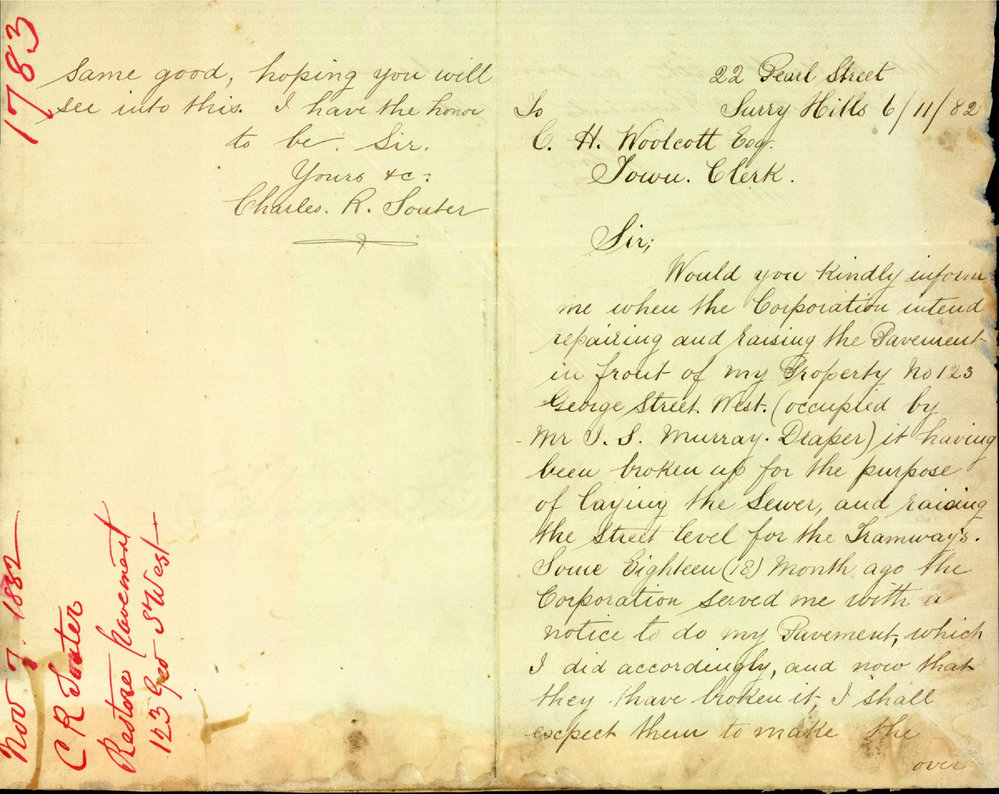 22 Pearl Street
Surry Hills 6/11/82
To
C. H. Woolcott Esq.
Town. Clerk.
Sir;
Would you kindly inform
me when the Corporation intend
repairing and raising the Pavement
in front of my Property No 123
George Street. West. (occupied by
Mr J. S. Murray. Draper) it having
been broken up for the purpose
of laying the Sewer, and raising
the Street level for the Tramways.
Some Eighteen (18) Month ago the
Corporation served me with a
notice to do my Pavement, which
I did accordingly, and now that
they thave broken it, I shall
expect them to make the
over
same good, hoping you will
see into this. I have the honor
to be. Sir.
Yours &c:
Charles. R. Souter
1783
Nov 7. 1882
C R Souter
Restore pavement
123 Geo St West